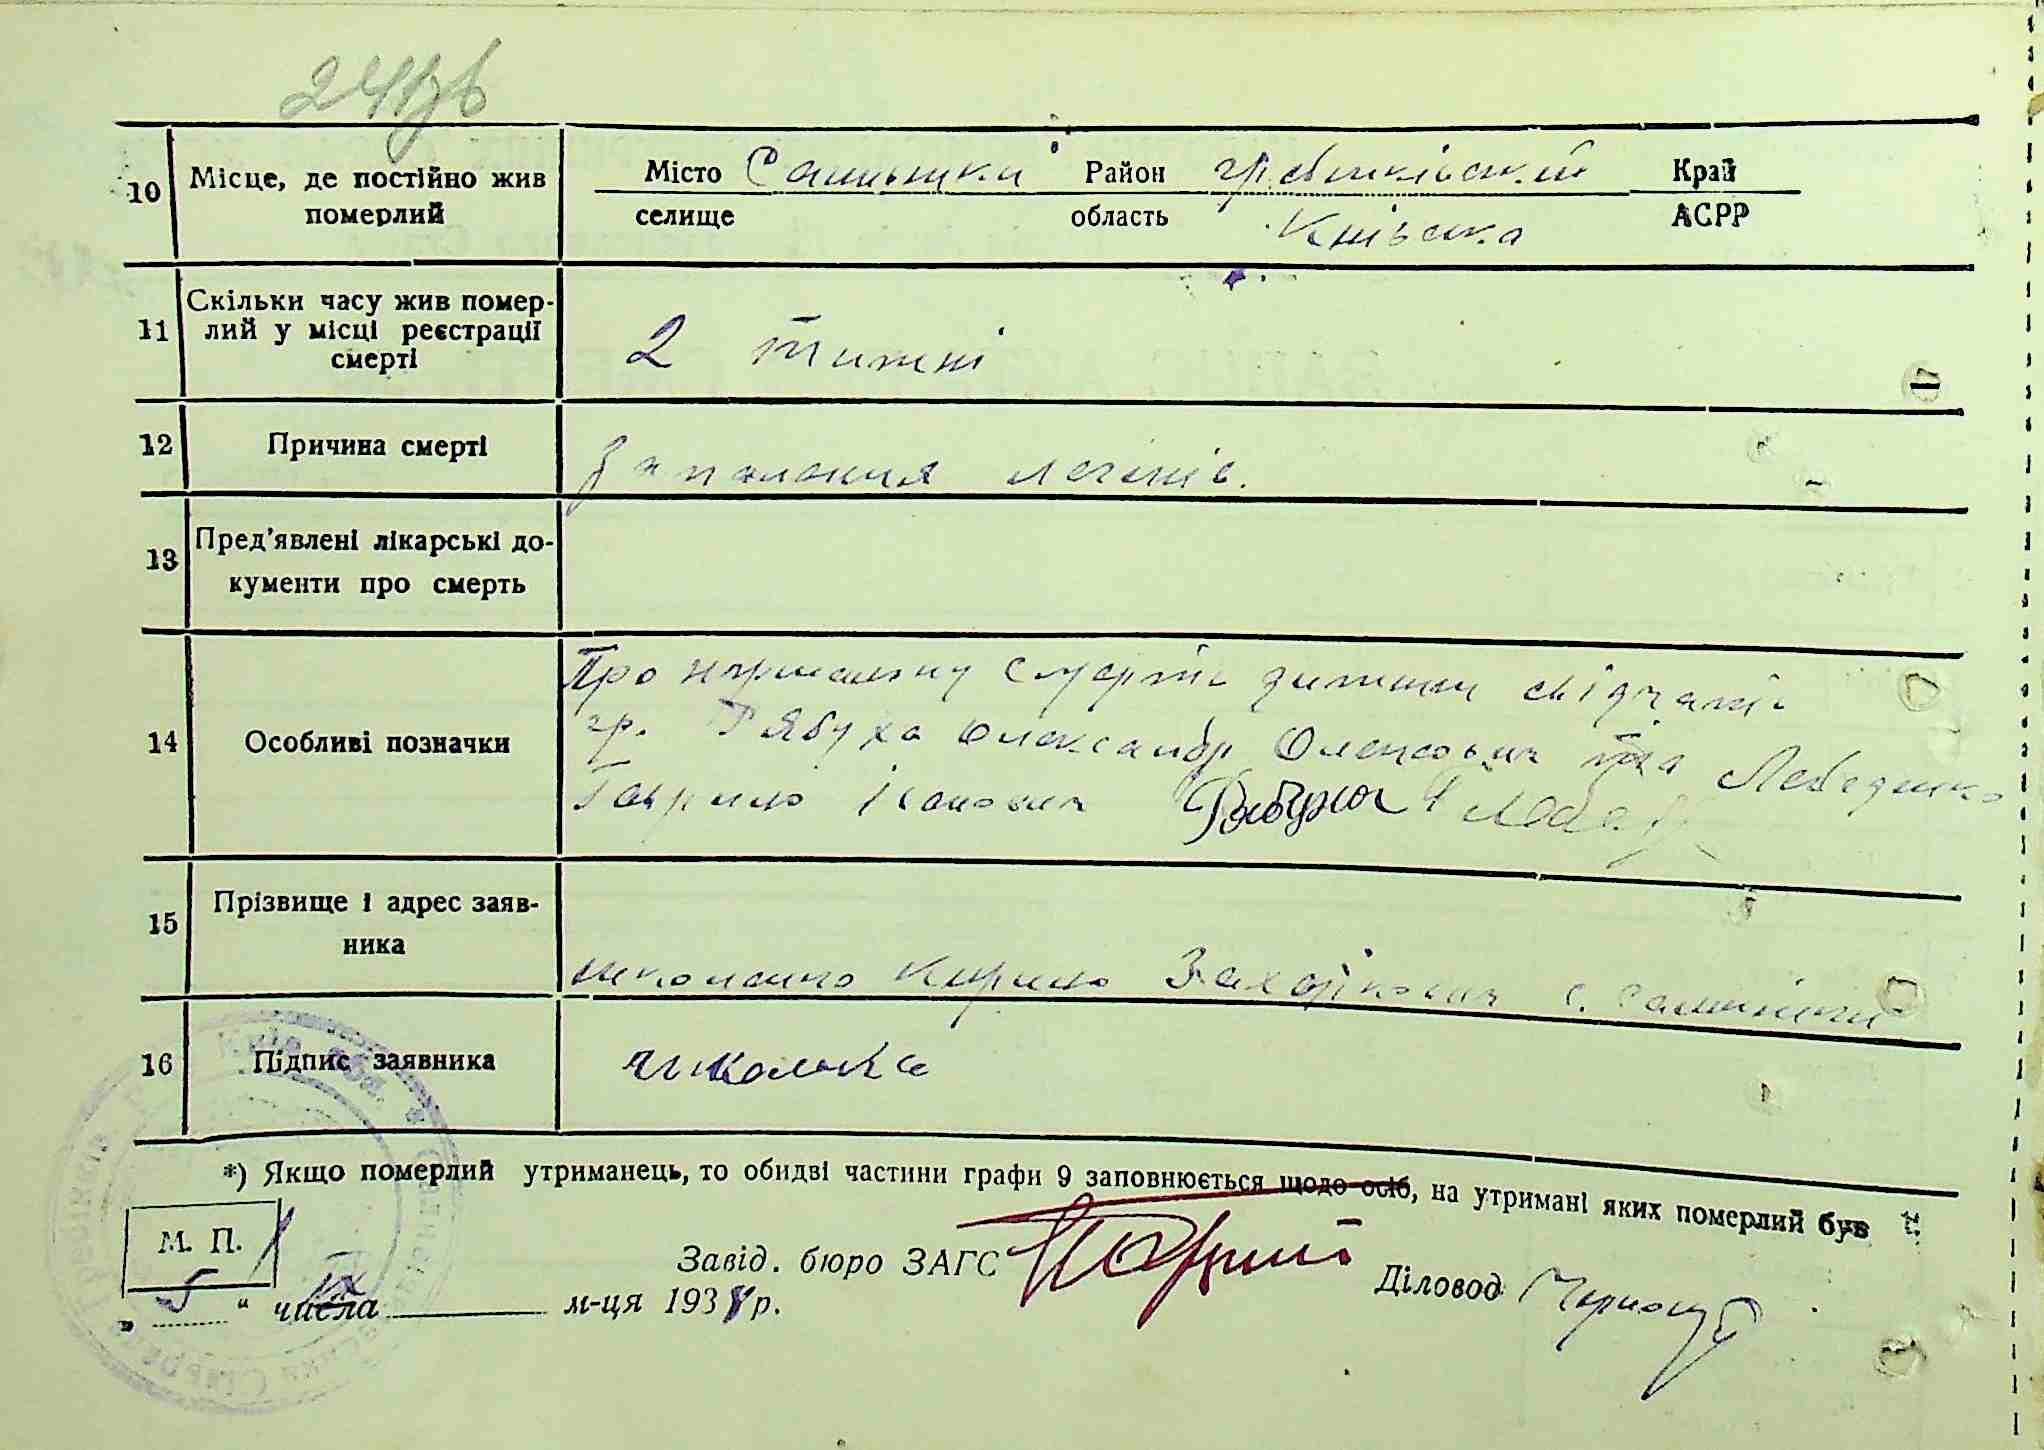 10 Місце, де постійно жив Місто Район гребінківський Край
померлий селище область Київська АСРР
Скільки часу жив помер-
11 лий у місці реєстрації 2 тижні
смерті
12 Причина смерті Запалення легенів.
13 Пред’явлені лікарські до-
кументи про смерть
Про нормальну смерть дитини свідчать
14 Особливі позначки гр. Рябуха Олександр та Лебединко
Гаврило Іванович Рябуха
15 Прізвище і адрес заяв-
ника Кирило Захарікович с.
16 Підпис заявника
*) Якщо померлий утриманець, то обидві частини графи 9 заповнюється щодо осіб, на утримані яких померлий був
М. П.
Завід. бюро ЗАГС Діловод
„ 5 “ числа IX м-ця 193 р.